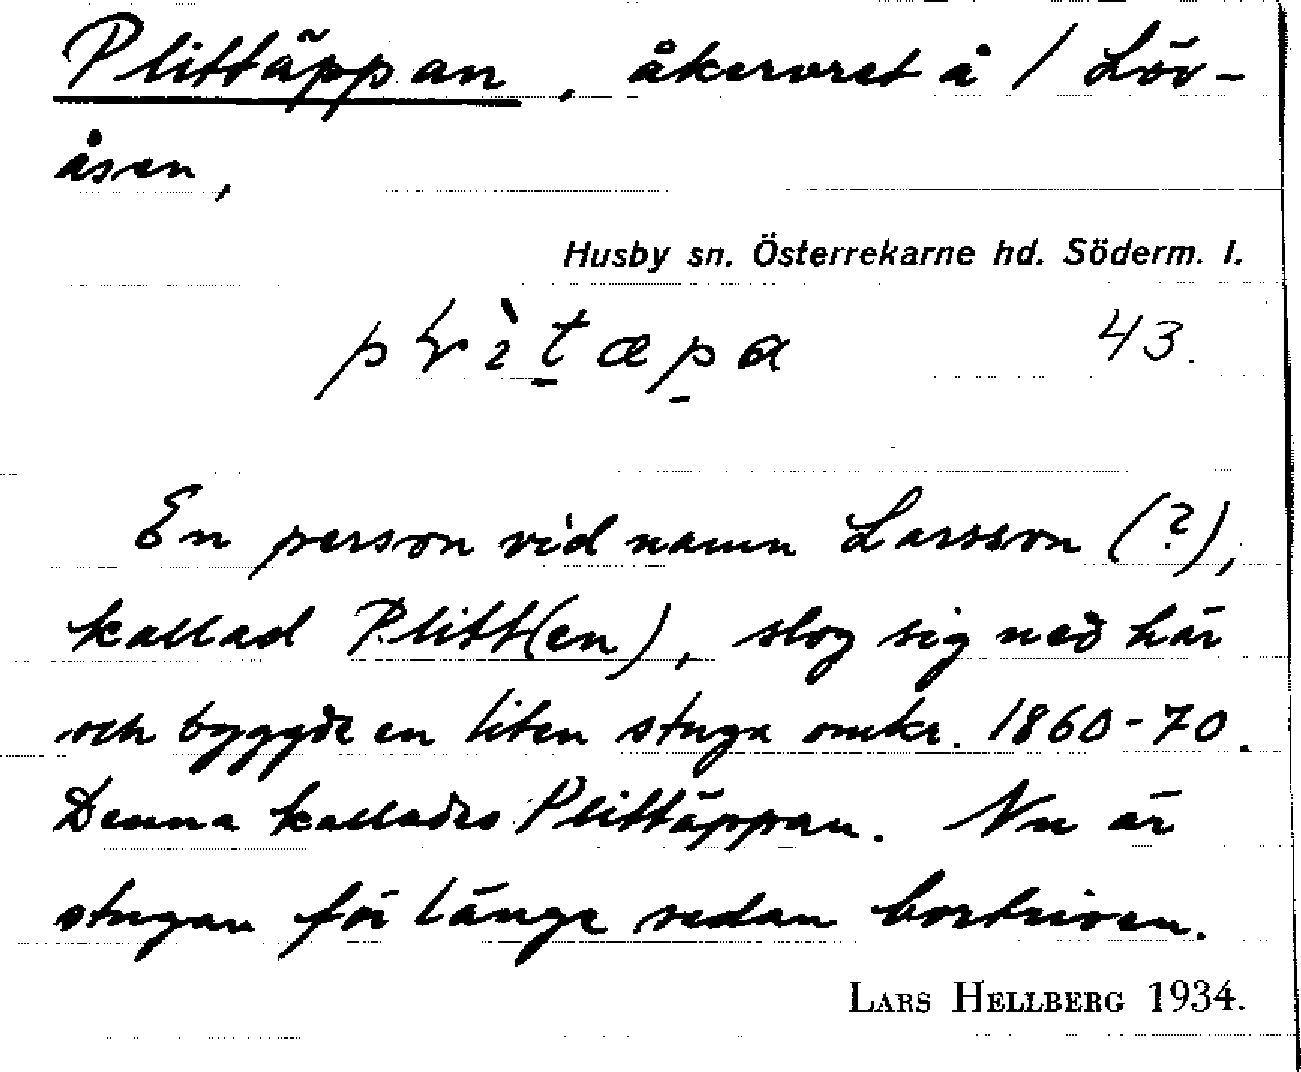 Plittäppan, åkervret å / Löv-
åsen,
Husby sn. Österrekarne hd. Söderm. l.
43.
En person vid namn Larsson (?),
kallad Plitt(en), slog sig ned här
och byggde en liten stuga omkr. 1860-70.
Denna kallades Plittäppan. Nu är
stugan för länge sedan bortriven.
LARS HELLBERG 1934.